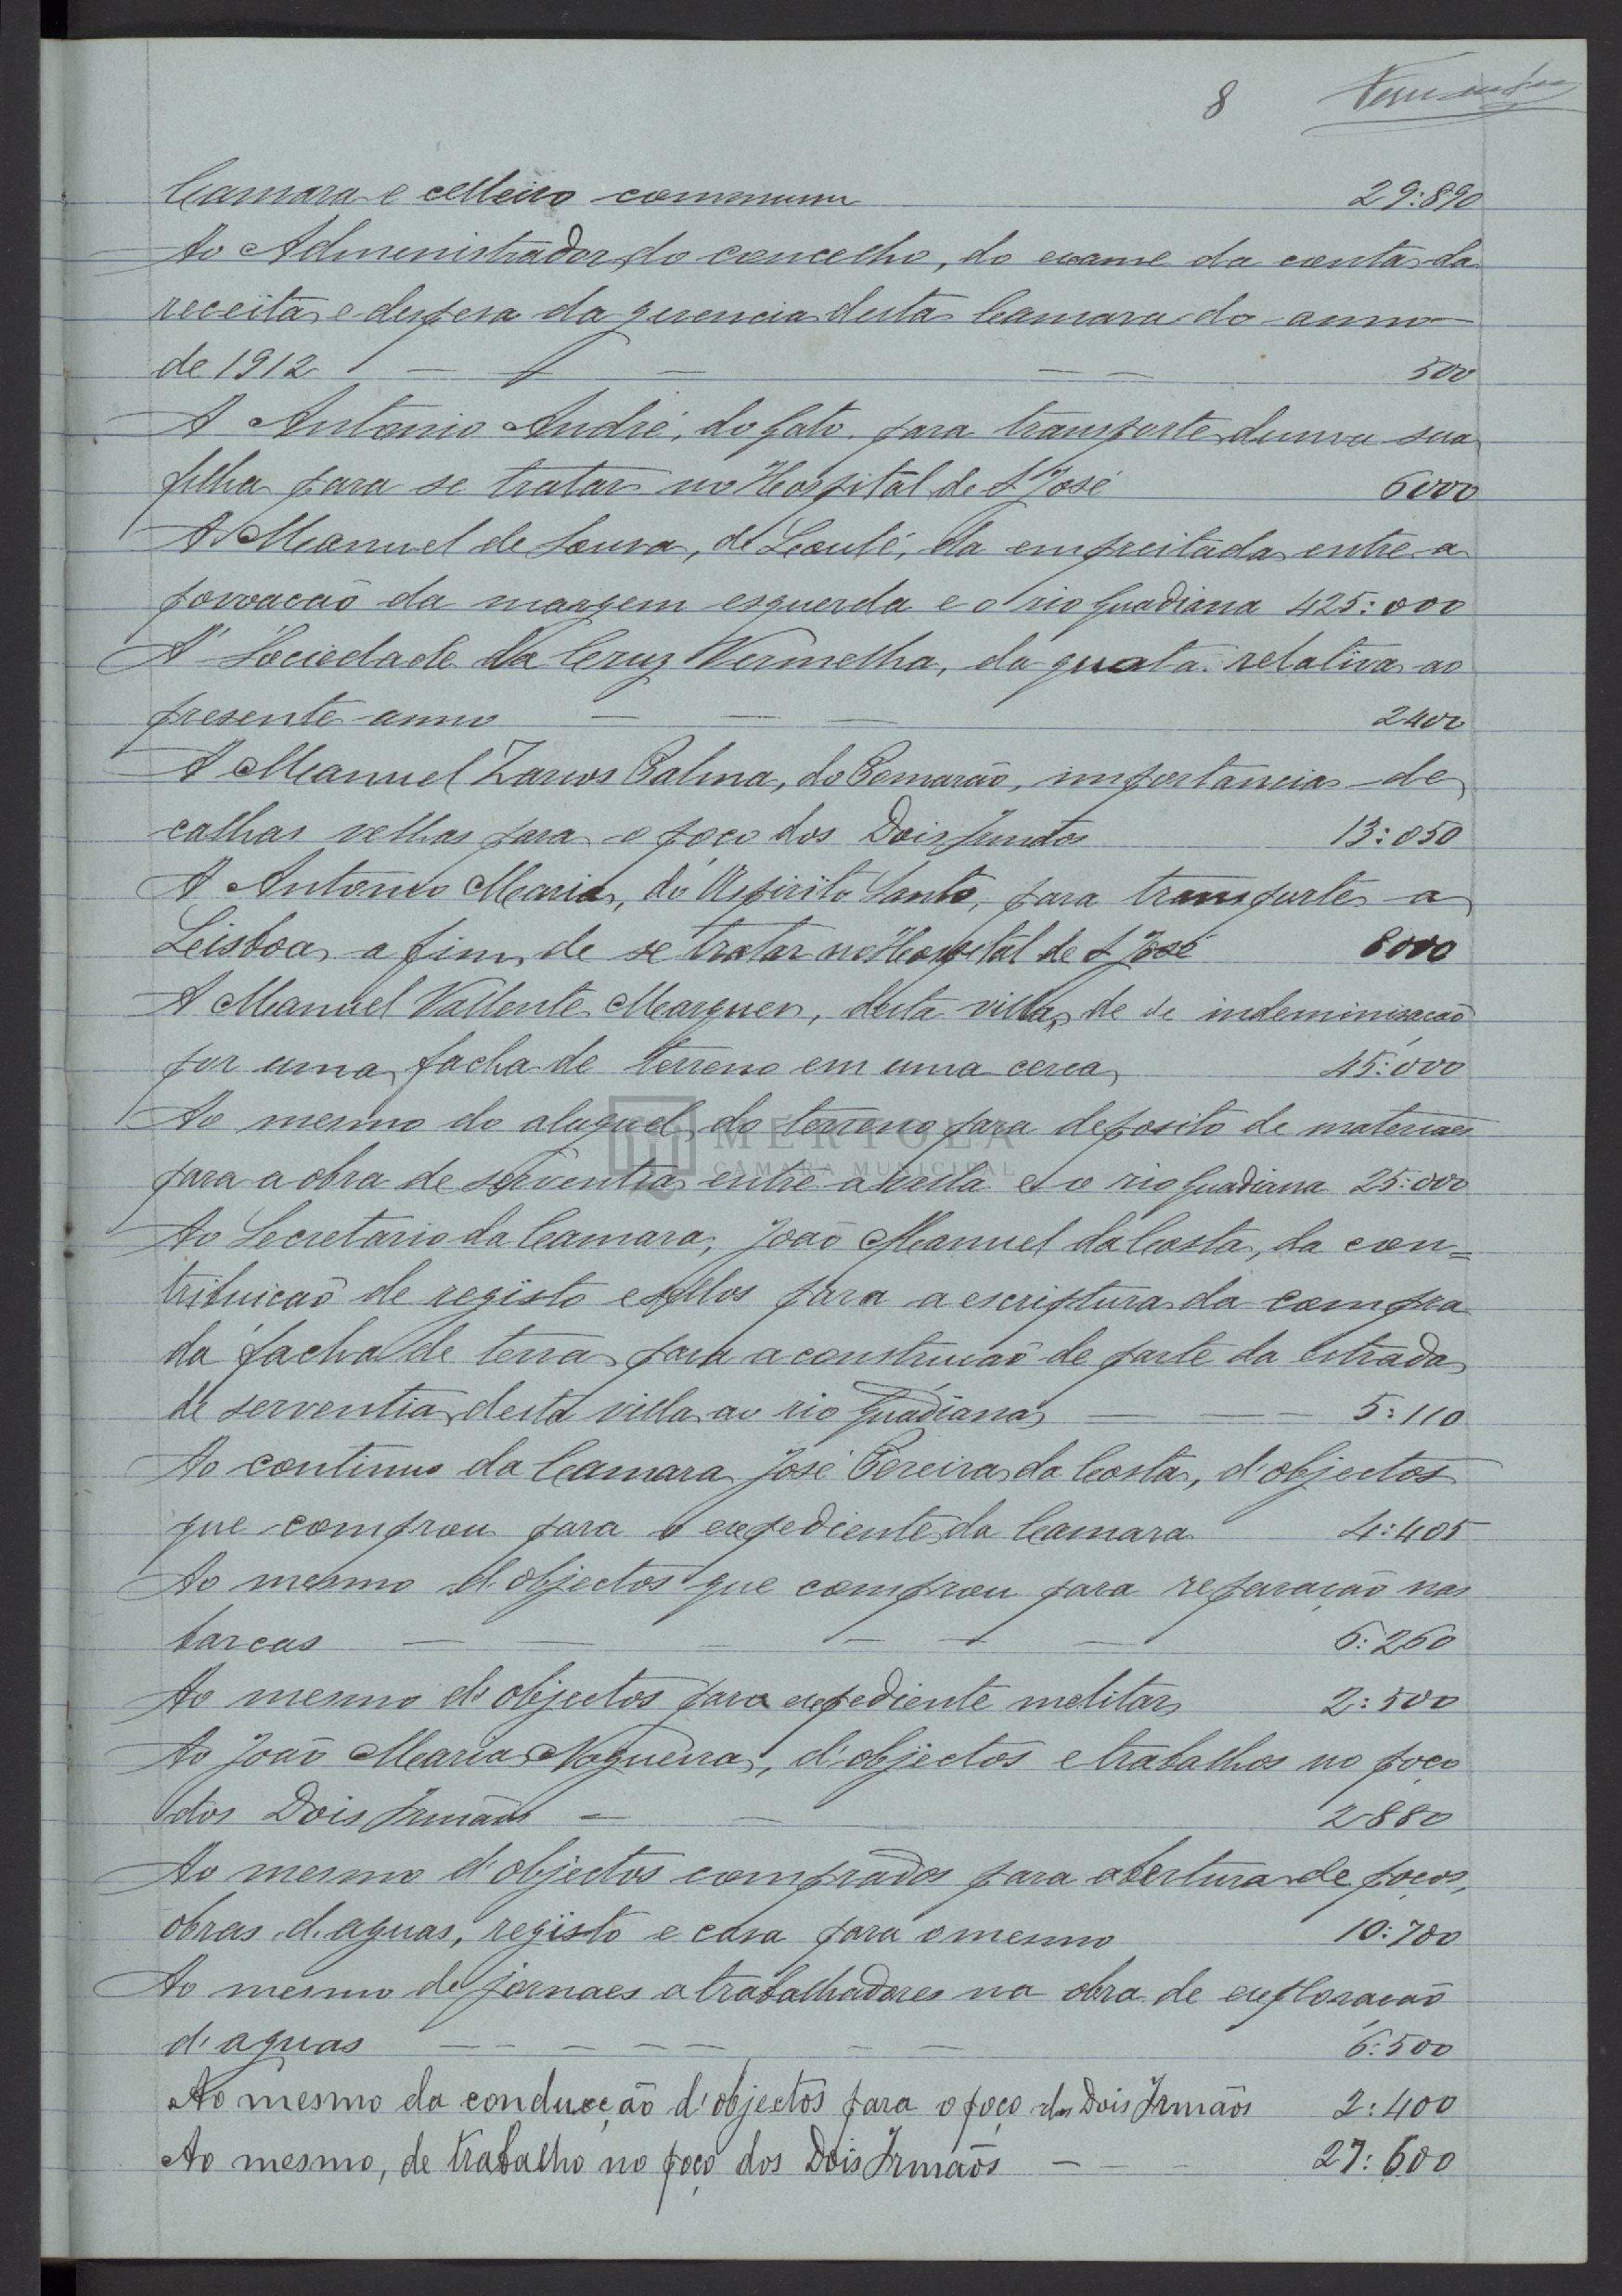 8 Fernandes
Camara e celleiro commum 29:890
Ao Administrador do concelho, do exame da conta da
receita e despesa da gerencia desta Camara do anno
de 1912 — — — — — 500
A Antonio André, do Gato, para transporte duma sua
filha para se tratar no Hospital de S José 6000
A Manuel de Sousa, de Loulé, da empreitada entre a
povoacaõ da margem esquerda e o rio Guadiana 425:000
Á Sociedade da Cruz Vermelha, da quota relativa ao
presente anno — — — 2400
A Manuel Zarcos Palma, do Pomarão, importancia de
calhas velhas para o poço dos Dois Irmãos 13:050
A Antonio Maria, do Espirito Santo, para transporte a
Leisboa a fim de se tratar no Hospital de S José 8000
A Manuel Vallente Marques, desta villa, de de indeminisacaõ
por uma facha de terreno em uma cerca 45:000
Ao mesmo do aluguel do terreno para deposito de materiaes
para a obra de serventia entre a villa e o rio Guadiana 25:000
Ao Secretario da Camara, Joaõ Manuel da Costa, da con=
tribuicaõ de registo e sellos para a escriptura da compra
da facha de terra para a construcaõ de parte da estrada
de serventia desta villa ao rio Guadiana — — — 5:110
Ao continuo da Camara José Pereira da Costa, d'objectos
que comprou para o expediente da Camara 4:405
Ao mesmo d'objectos que comprou para reparação nas
barcas — — — — — — 6:260
Ao mesmo d'objectos para expediente melitar 2:500
Ao Joaõ Maria Nogueira, d'objectos e trabalhos no poço
dos Dois Irmãos — — 2880
Ao mesmo d'objectos comprados para abertura de poços,
obras d'aguas, registo e casa para o mesmo 10:700
Ao mesmo de jornaes a trabalhadores na obra de exploracaõ
d'aguas — — — — — — — 6:500
Ao mesmo da conducçaõ d'objectos para o poço dos Dois Irmaõs 2:400
Ao mesmo, de trabalho no poço dos Dois Irmaõs — — — 27:600
MÉRTOLA
CÂMARA MUNICIPAL